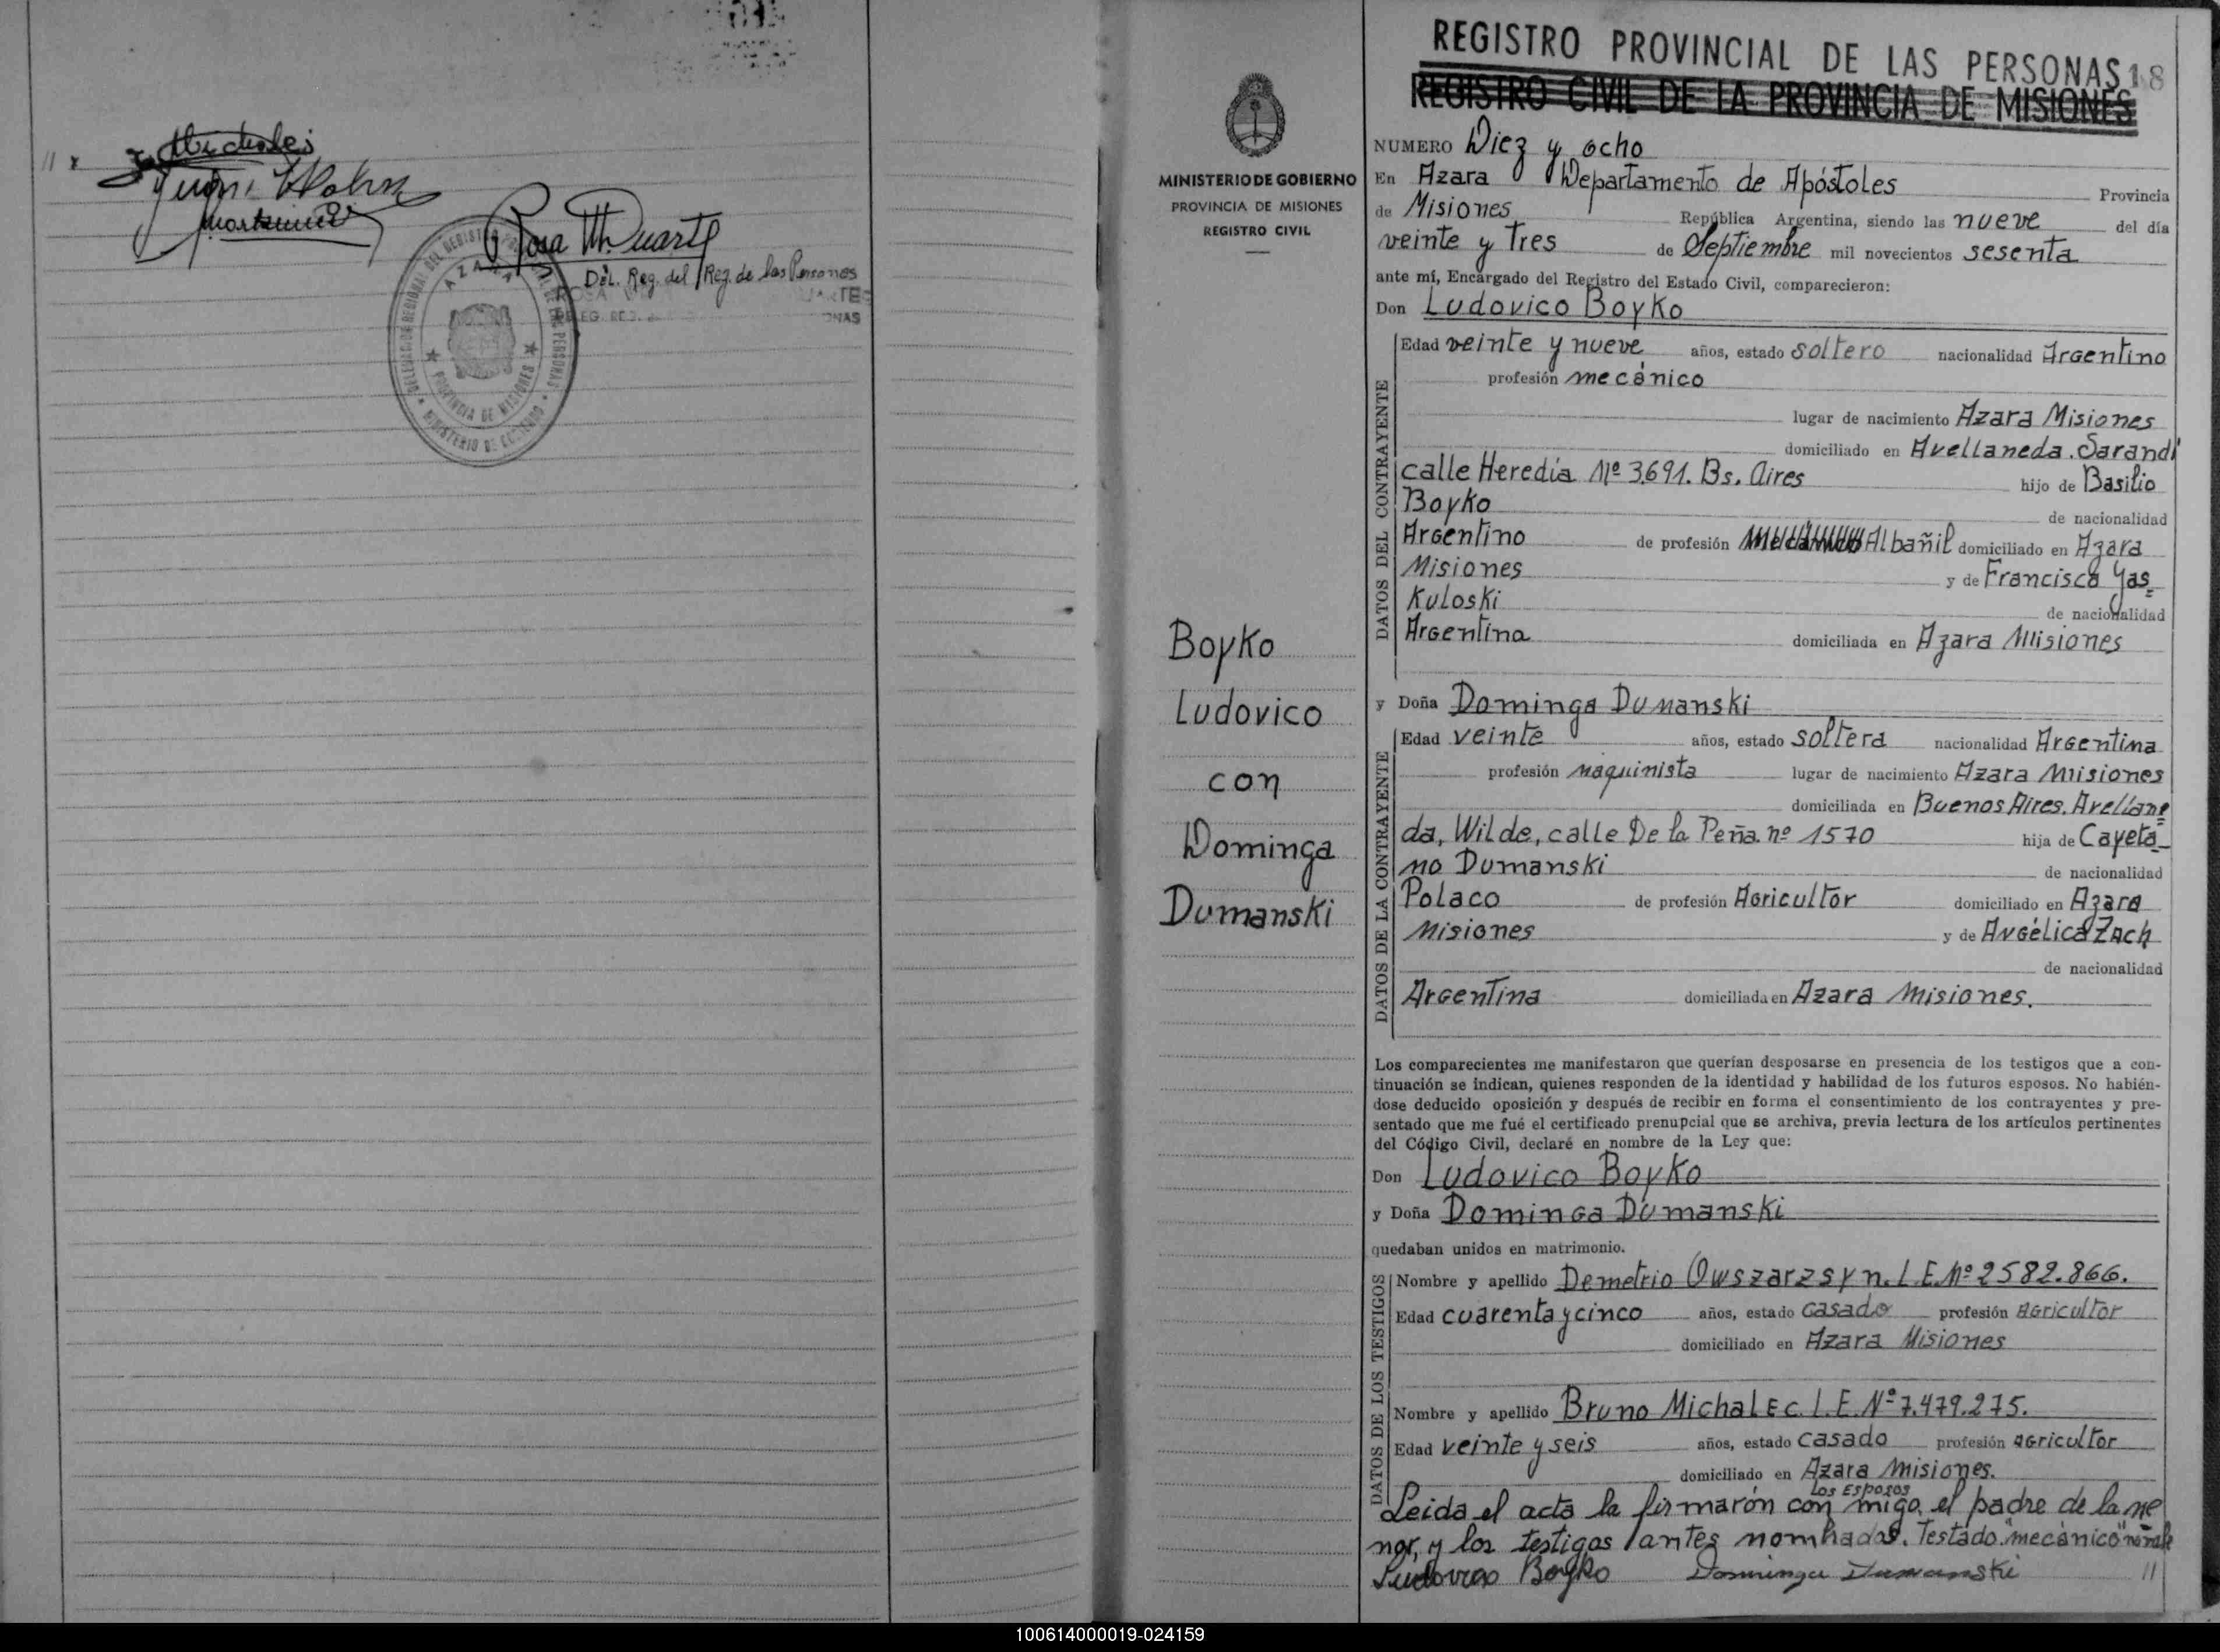 Rosa M. Duarte
Del. Reg. del Reg. de las Personas
AZARA
PROVINCIA DE MISIONES
MINISTERIO DE GOBIERNO
MINISTERIO DE GOBIERNO
PROVINCIA DE MISIONES
REGISTRO CIVIL
Boyko
Ludovico
con
Dominga
Dumanski
REGISTRO PROVINCIAL DE LAS PERSONAS 18
REGISTRO CIVIL DE LA PROVINCIA DE MISIONES
NUMERO Diez y ocho
En Azara Departamento de Apóstoles Provincia
de Misiones República Argentina, siendo las nueve del día
veinte y Tres de Septiembre mil novecientos sesenta
ante mí, Encargado del Registro del Estado Civil, comparecieron:
Don Ludovico Boyko
DATOS DEL CONTRAYENTE
Edad veinte y nueve años, estado soltero nacionalidad Argentino
profesión mecánico
lugar de nacimiento Azara Misiones
domiciliado en Avellaneda. Sarandí
calle Heredia Nº 3691. Bs. Aires hijo de Basilio
Boyko de nacionalidad
Argentino de profesión Mecánico Albañil domiciliado en Azara
Misiones y de Francisca Yas=
Kuloski de nacionalidad
Argentina domiciliada en Azara Misiones
y Doña Dominga Dumanski
DATOS DE LA CONTRAYENTE
Edad veinte años, estado soltera nacionalidad Argentina
profesión maquinista lugar de nacimiento Azara Misiones
domiciliada en Buenos Aires. Avellane=
da, Wilde, calle De la Peña. nº 1570 hija de Cayeta=
no Dumanski de nacionalidad
Polaco de profesión Agricultor domiciliado en Azara
Misiones y de Angélica Zach
de nacionalidad
Argentina domiciliada en Azara Misiones.
Los comparecientes me manifestaron que querían desposarse en presencia de los testigos que a con-
tinuación se indican, quienes responden de la identidad y habilidad de los futuros esposos. No habién-
dose deducido oposición y después de recibir en forma el consentimiento de los contrayentes y pre-
sentado que me fué el certificado prenupcial que se archiva, previa lectura de los artículos pertinentes
del Código Civil, declaré en nombre de la Ley que:
Don Ludovico Boyko
y Doña Dominga Dumanski
quedaban unidos en matrimonio.
DATOS DE LOS TESTIGOS
Nombre y apellido Demetrio Owszarzsyn. L.E. Nº 2582.866.
Edad cuarenta y cinco años, estado casado profesión agricultor
domiciliado en Azara Misiones
Nombre y apellido Bruno Michalec. L.E. Nº 7.479.275.
Edad veinte y seis años, estado casado profesión agricultor
domiciliado en Azara Misiones.
Los Esposos
Leida el acta la firmarón con migo, el padre de la me
nor, y los testigos antes nombrados. Testado "mecánico" no vale
Ludovico Boyko Dominga Dumanski //
100614000019-024159